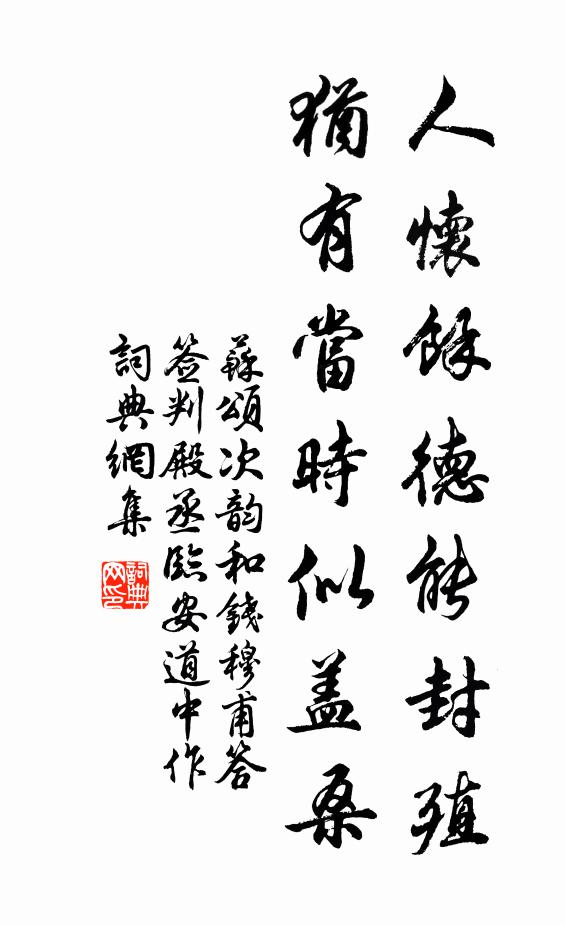 人懷餘德能封殖
猶有當時似盖桑
蘇頌次韵和錢穆甫答
签判殿丞臨安道中作
詞典網集
詞典网印